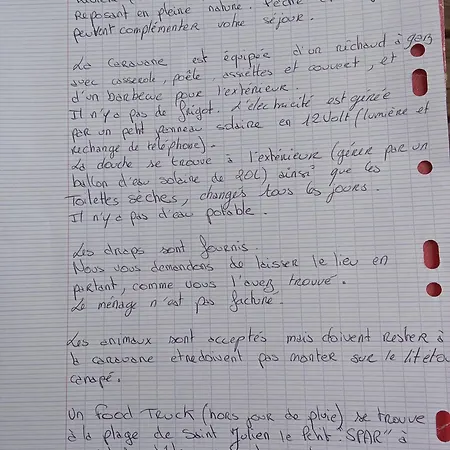 Reposant en pleine nature. Pêche et
peuvent complémenter votre séjour.
La caravane est équipée d'un réchaud à gaz
avec casserole, poêle, assiettes et couvert, et
d'un barbecue pour l'extérieur.
Il n'y a pas de frigot. L'électricité est gérée
par un petit panneau solaire en 12 Volt (lumière et
rechange de téléphone).
La douche se trouve à l'extérieure (gérer par un
ballon d'eau solaire de 20L) ainsi que les
toilettes sèches, changés tous les jours.
Il n'y a pas d'eau potable.
Les draps sont fournis.
Nous vous demandons de laisser le lieu en
partant, comme vous l'avez trouvé.
Le ménage n'est pas facturé.
Les animaux sont acceptés mais doivent rester à
la caravane et ne doivent pas monter sur le lit et a
canapé.
Un Food Truck (hors jour de pluie) se trouve
à la plage de Saint Julien le Petit. "SPAR" à